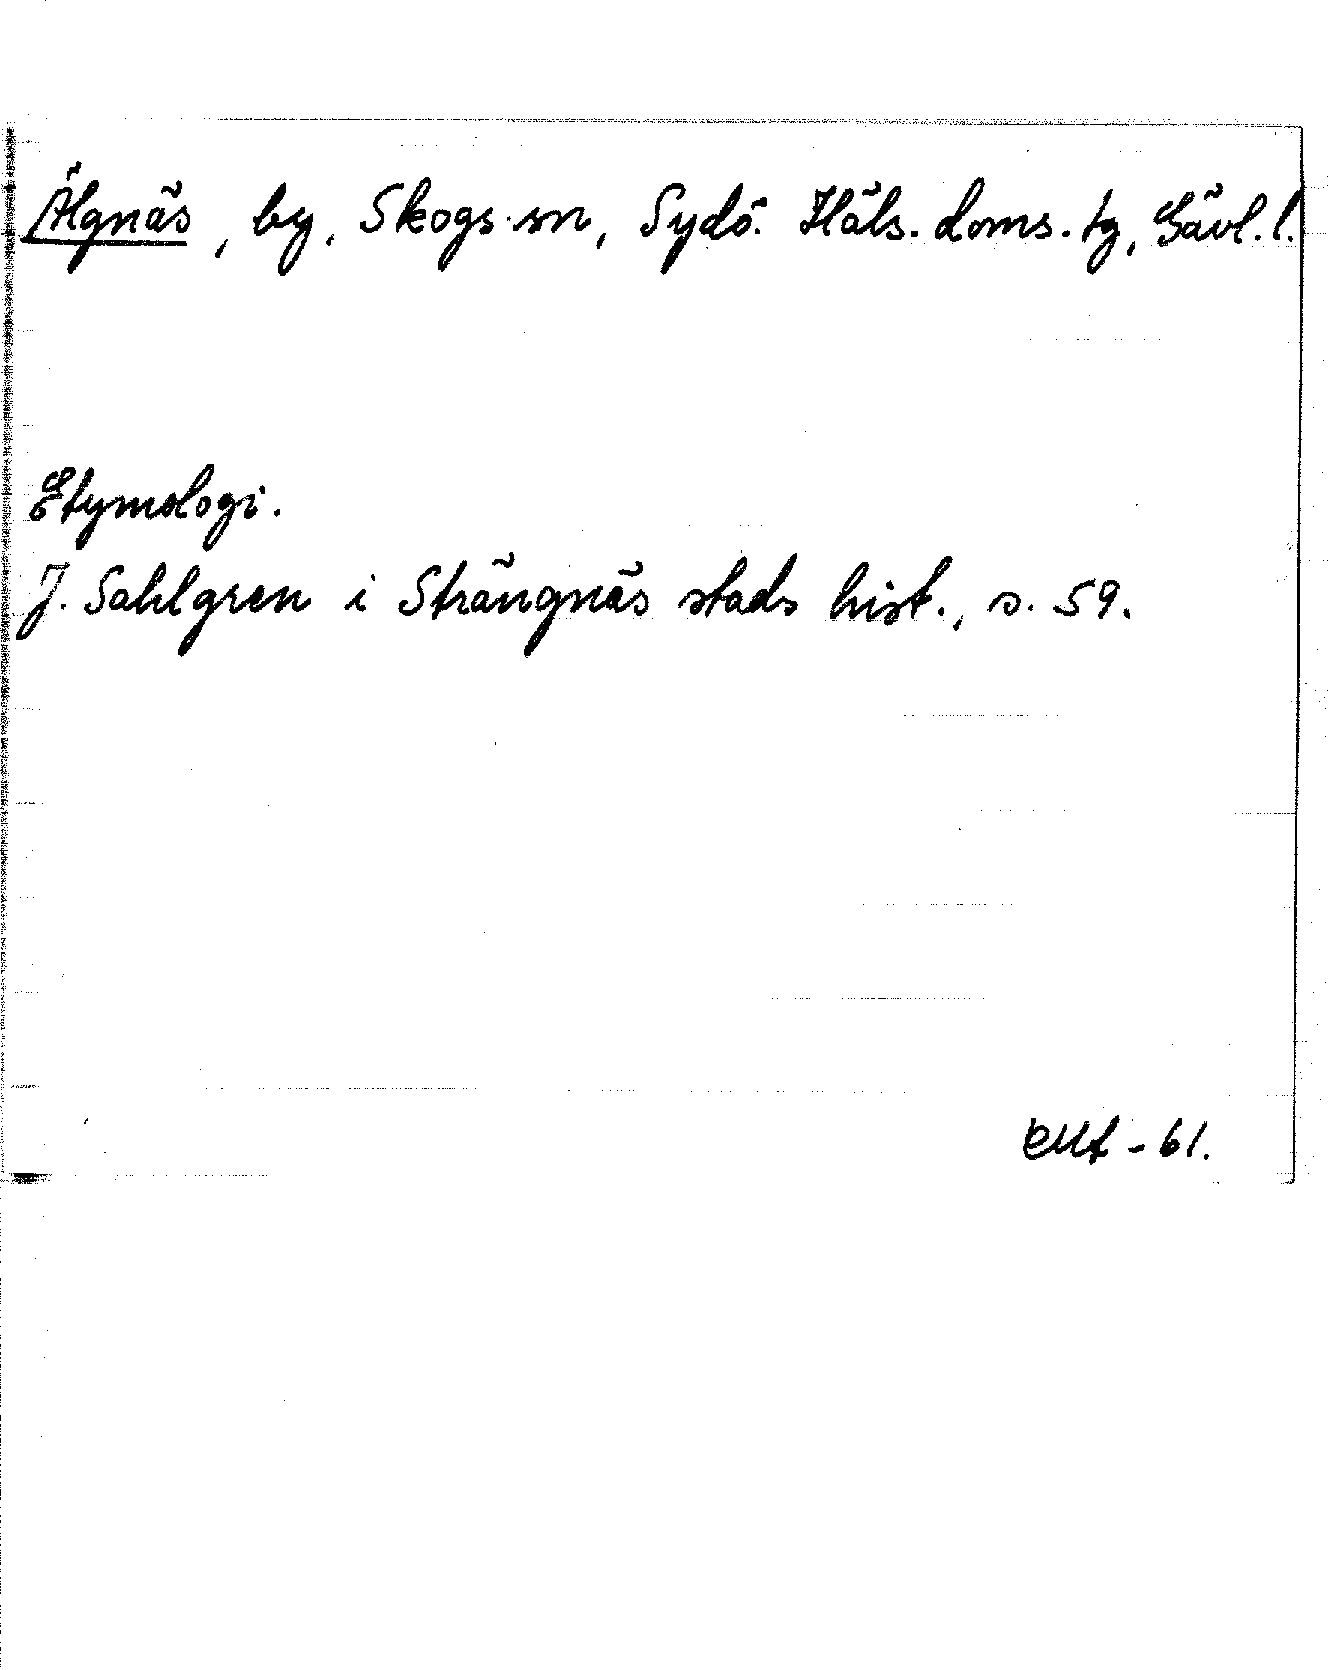 Älgnäs, by, Skogs sn, Sydö. Häls. doms. tg, Gävl. l.
Etymologi.
J. Sahlgren i Strängnäs stads hist., s. 59.
-61.